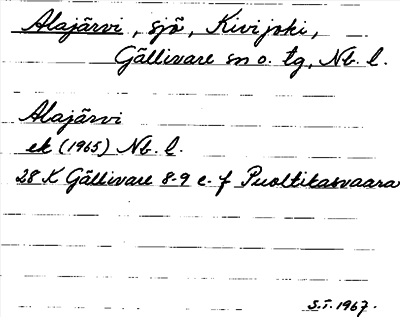 Alajärvi, sjö, Kivijoki,
Gällivare sn o. tg, Nb. l.
Alajärvi
ek (1965) Nb. l.
28 K Gällivare 8-9 e-f Puoltikasvaara
S.T. 1967.